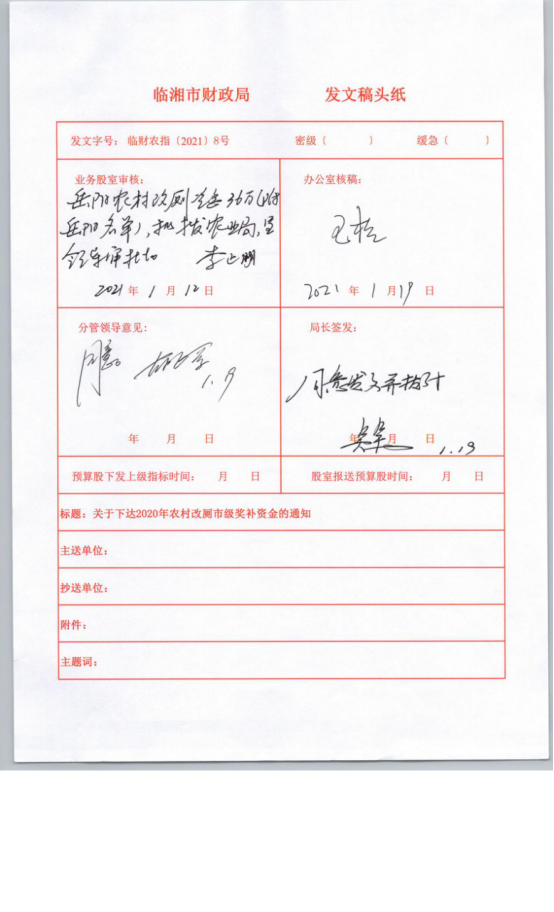 临湘市财政局 发文稿头纸
发文字号： 临财农指〔2021〕8号 密级〔 〕 缓急〔 〕
业务股室审核：
岳阳农村改厕资金36万(附
岳阳名单)，拟拨农业局，呈
领导审批
2021 年 1 月 12 日
办公室核稿：
已核
2021 年 1 月 19 日
分管领导意见：
同意
1.19
年 月 日
局长签发：
同意发文并拨付
年 月 日
1.19
预算股下发上级指标时间： 月 日 股室报送预算股时间： 月 日
标题：关于下达2020年农村改厕市级奖补资金的通知
主送单位：
抄送单位：
附件：
主题词：